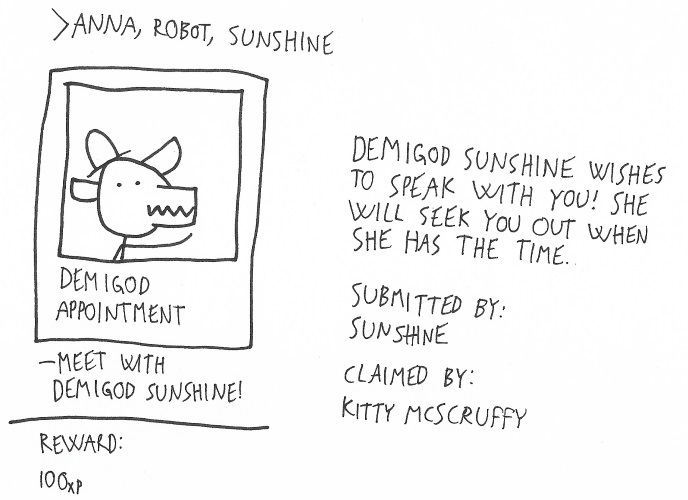 >ANNA, ROBOT, SUNSHINE
DEMIGOD
APPOINTMENT
-MEET WITH
DEMIGOD SUNSHINE!
REWARD:
100XP
DEMIGOD SUNSHINE WISHES
TO SPEAK WITH YOU! SHE
WILL SEEK YOU OUT WHEN
SHE HAS THE TIME.
SUBMITTED BY:
SUNSHINE
CLAIMED BY:
KITTY MCSCRUFFY